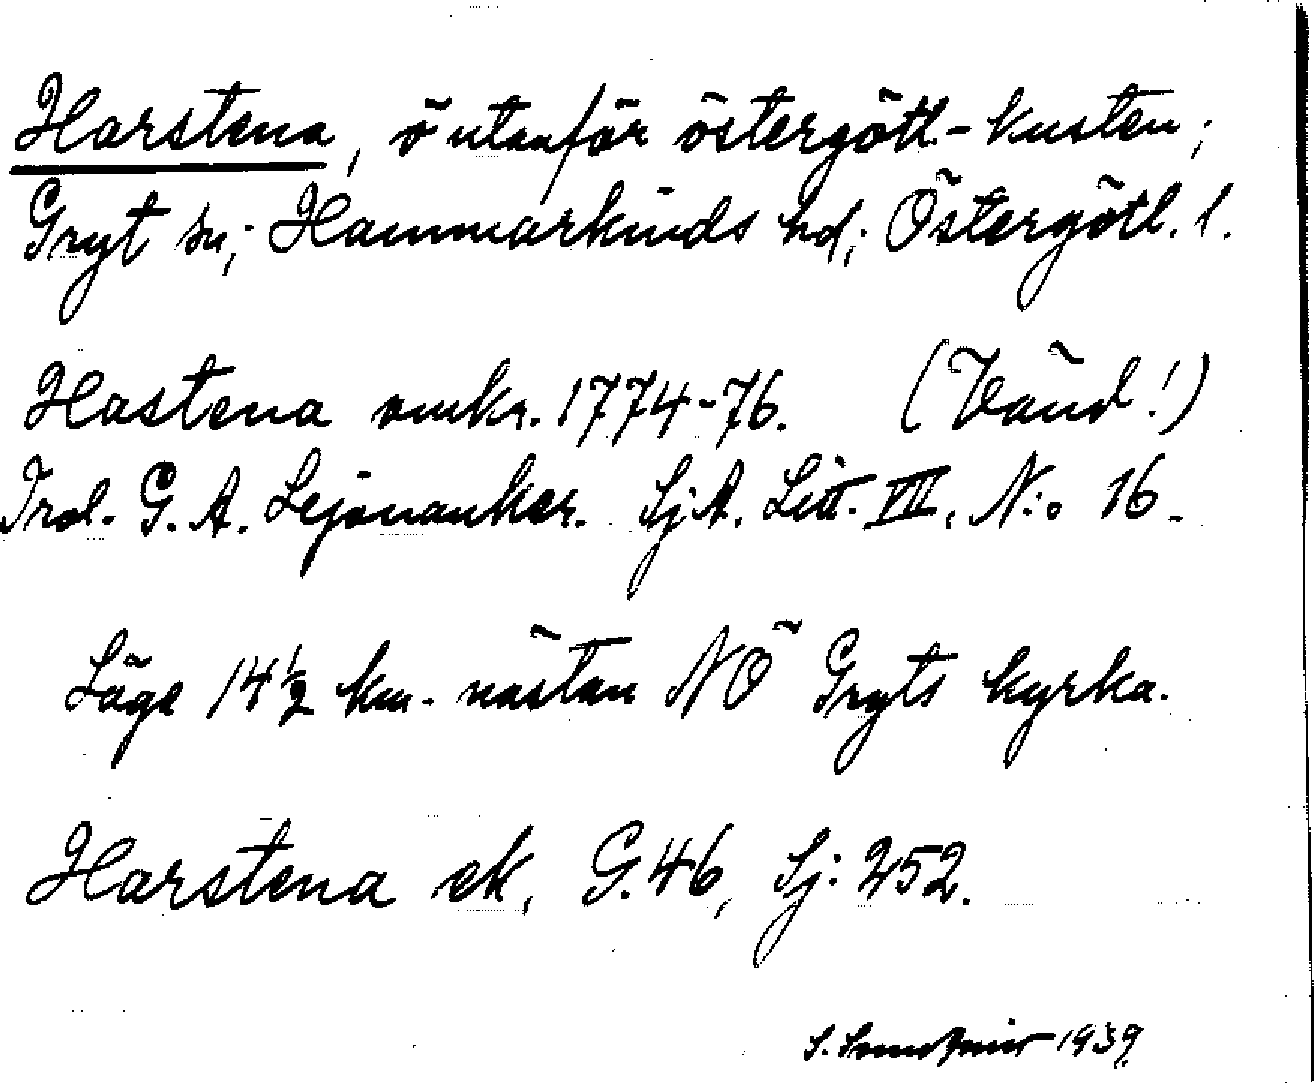 Harstena, ö utanför östergötl.-kusten;
Gryt sn; Hammarkinds hd; Östergötl. l.
Hastena omkr. 1774-76. (Vänd!)
Trol. G. A. Lejonanker. Sj.A. Litt. VIII, N:o 16.
Läge 14½ km. nästan NÖ Gryts kyrka.
Harstena ek, G. 46, Sj: 252.
S. 1939